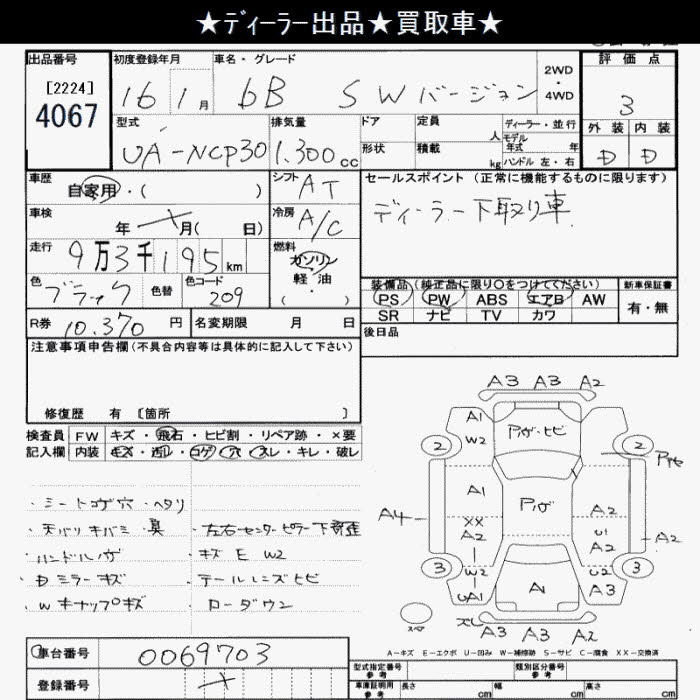 ★ディーラー出品★買取車★
出品番号 初度登録年月 車名・グレード 2WD・4WD 評価点
[2224]
4067
16 1月 bB S Wバージョン 3
型式 排気量 ドア 定員 人 ディーラー・並行 外装 内装
モデル年式 年
UA-NCP30 1.300cc 形状 積載 kg ハンドル 左・右 D D
車歴 自家用・( ) シフト AT セールスポイント(正常に機能するものに限ります)
車検 年 月( 日) 冷房 A/C ディーラー下取り車
走行 9万3千195km 燃料 ガソリン
軽油
・
( )
色 ブラック 色替 色コード 209
装備品(純正品に限り○をつけてください) 新車保証書
PS PW ABS エアB AW 有・無
SR ナビ TV カワ
R券 10.370円 名変期限 月 日 後日品
注意事項申告欄(不具合内容等は具体的に記入して下さい)
修復歴 有 [箇所 ]
検査員 FW キズ・飛石・ヒビ割・リペア跡・×要
記入欄 内装 キズ・汚レ・コゲ・穴・スレ・キレ・破レ
・シートコゲ穴・ヘタリ
・天バリキバミ・臭
・ハンドルハゲ
・Dミラーキズ
・Wキャップキズ
・左右センターピラー下歪
・キズ E W2
・テールレンズヒビ
・ローダウン
A3 A3 A2
A1
W2
2 2
A1
A4
XX
A2
A2
U1
A2
A2
3 3
W2
UA1
A1
U2
A3
スペア
ズレ
A3 A3 A2
A-キズ E-エクボ U-凹み W-補修跡 S-サビ C-腐食 XX-交換済
車台番号 0069703
登録番号
型式指定番号 参考 類別区分番号 参考
車庫証明用 参考 長さ cm 幅 cm 高さ cm